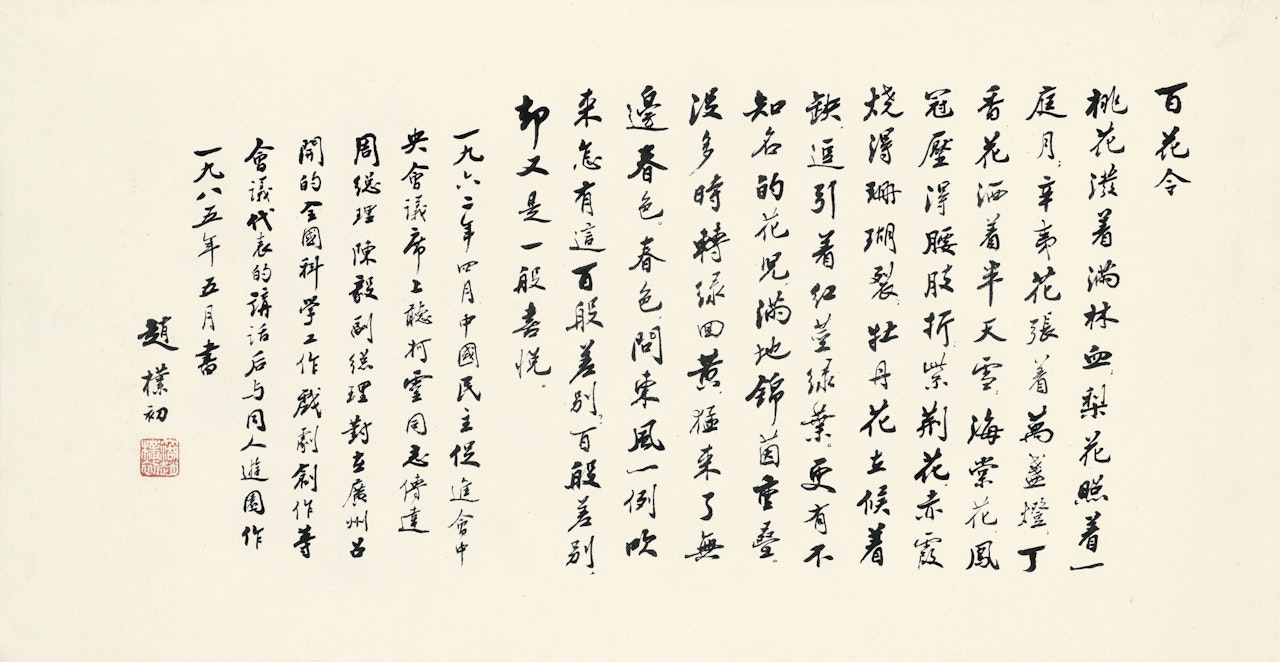 百花令
桃花潑着滿林血，梨花照着一
庭月；辛夷花張着萬盞燈，丁
香花洒着半天雪，海棠花鳳
冠壓得腰肢折，紫荆花赤霞
燒得珊瑚裂，牡丹花立候着
缺，逗引着红萼绿葉，更有不
知名的花児滿地錦茵重疊，
没多時轉绿回黄，猛来了無
邊春色。春色，問東風一例吹
来怎有這百般差别，百般差别，
却又是一般喜悦。
一九六二年四月中國民主促進會中
央會議席上聽柯靈同志傳達
周總理陳毅副總理對在廣州召
開的全國科学工作戲劇創作等
會議代表的講話后与同人遊園作
一九八五年五月書
趙樸初